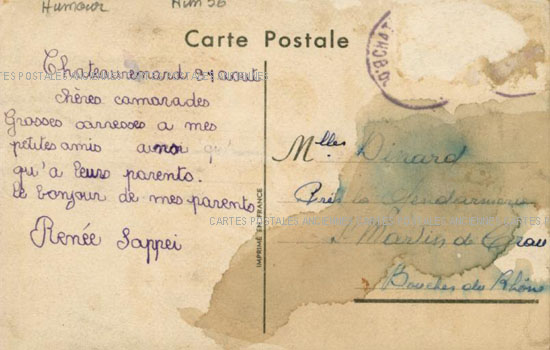 Humour
Hum 56
Carte Postale
Chateaurenard 31 aout
chères camarades
Grosses caresses a mes
petites amis ainsi qu'
qu'a leurs parents.
le bonjour de mes parents
Renée Sappei
IMPRIMÉ EN FRANCE
Melles Divard
Près la Gendarmerie
St Martin de Crau
Bouches du Rhône
CARTES POSTALES ANCIENNES